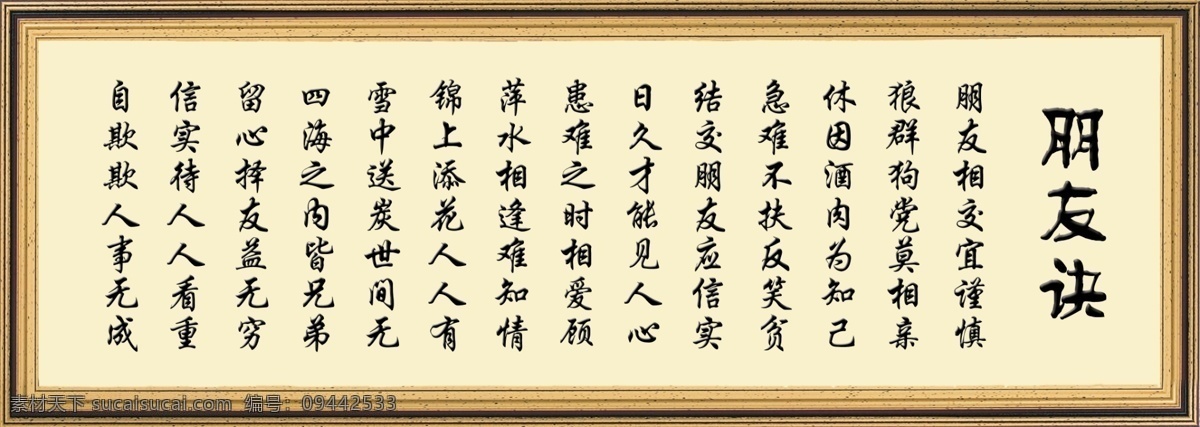 朋友诀
朋友相交宜谨慎
狼群狗党莫相亲
休因酒肉为知己
急难不扶反笑贫
结交朋友应信实
日久才能见人心
患难之时相爱顾
萍水相逢难知情
锦上添花人人有
雪中送炭世间无
四海之内皆兄弟
留心择友益无穷
信实待人人看重
自欺欺人事无成
素材天下 sucaisucai.com 编号：09442533